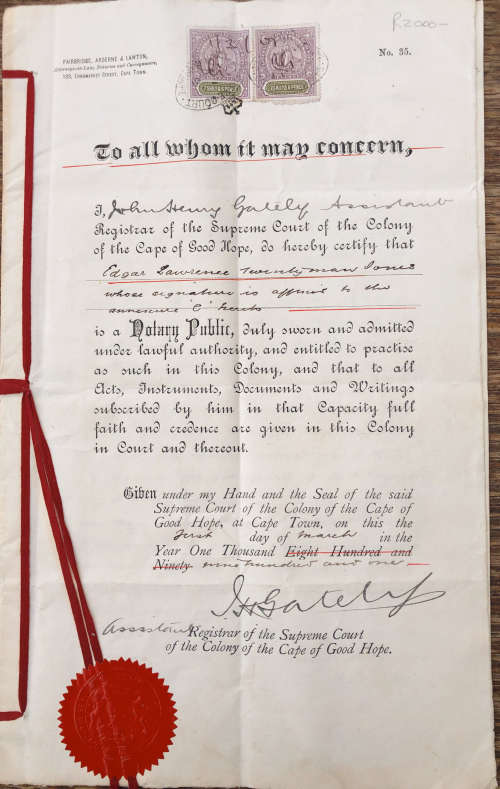 R2000-
FAIRBRIDGE, ARDERNE & LAWTON,
Attorneys-at-Law, Notaries and Conveyancers,
CHURCH STREET, CAPE TOWN.
No. 35.
To all whom it may concern,
I, John Henry Gately Assistant
Registrar of the Supreme Court of the Colony
of the Cape of Good Hope, do hereby certify that
Edgar Lawrence Twentyman Jones
whose signature is affixed to the
annexure "C" hereto
is a Notary Public, duly sworn and admitted
under lawful authority, and entitled to practise
as such in this Colony, and that to all
Acts, Instruments, Documents and Writings
subscribed by him in that Capacity full
faith and credence are given in this Colony
in Court and thereout.
Given under my Hand and the Seal of the said
Supreme Court of the Colony of the Cape of
Good Hope, at Cape Town, on this the
first day of March in the
Year One Thousand Eight Hundred and
Ninety nine hundred and one
JHGately
Assistant Registrar of the Supreme Court
of the Colony of the Cape of Good Hope.